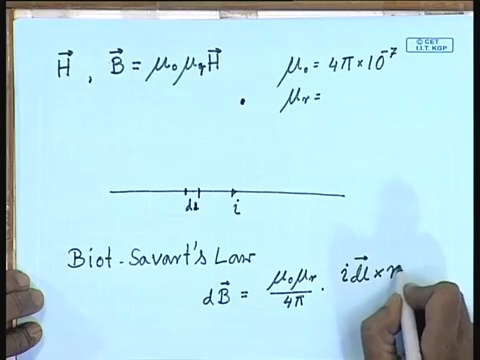 © CET
I.I.T. KGP
H⃗ , B⃗ = μ₀μᵣH⃗
μ₀ = 4π×10⁻⁷
μᵣ =
dl i
Biot-Savart's Law
dB⃗ = μ₀μᵣ/4π · i dl⃗ × r